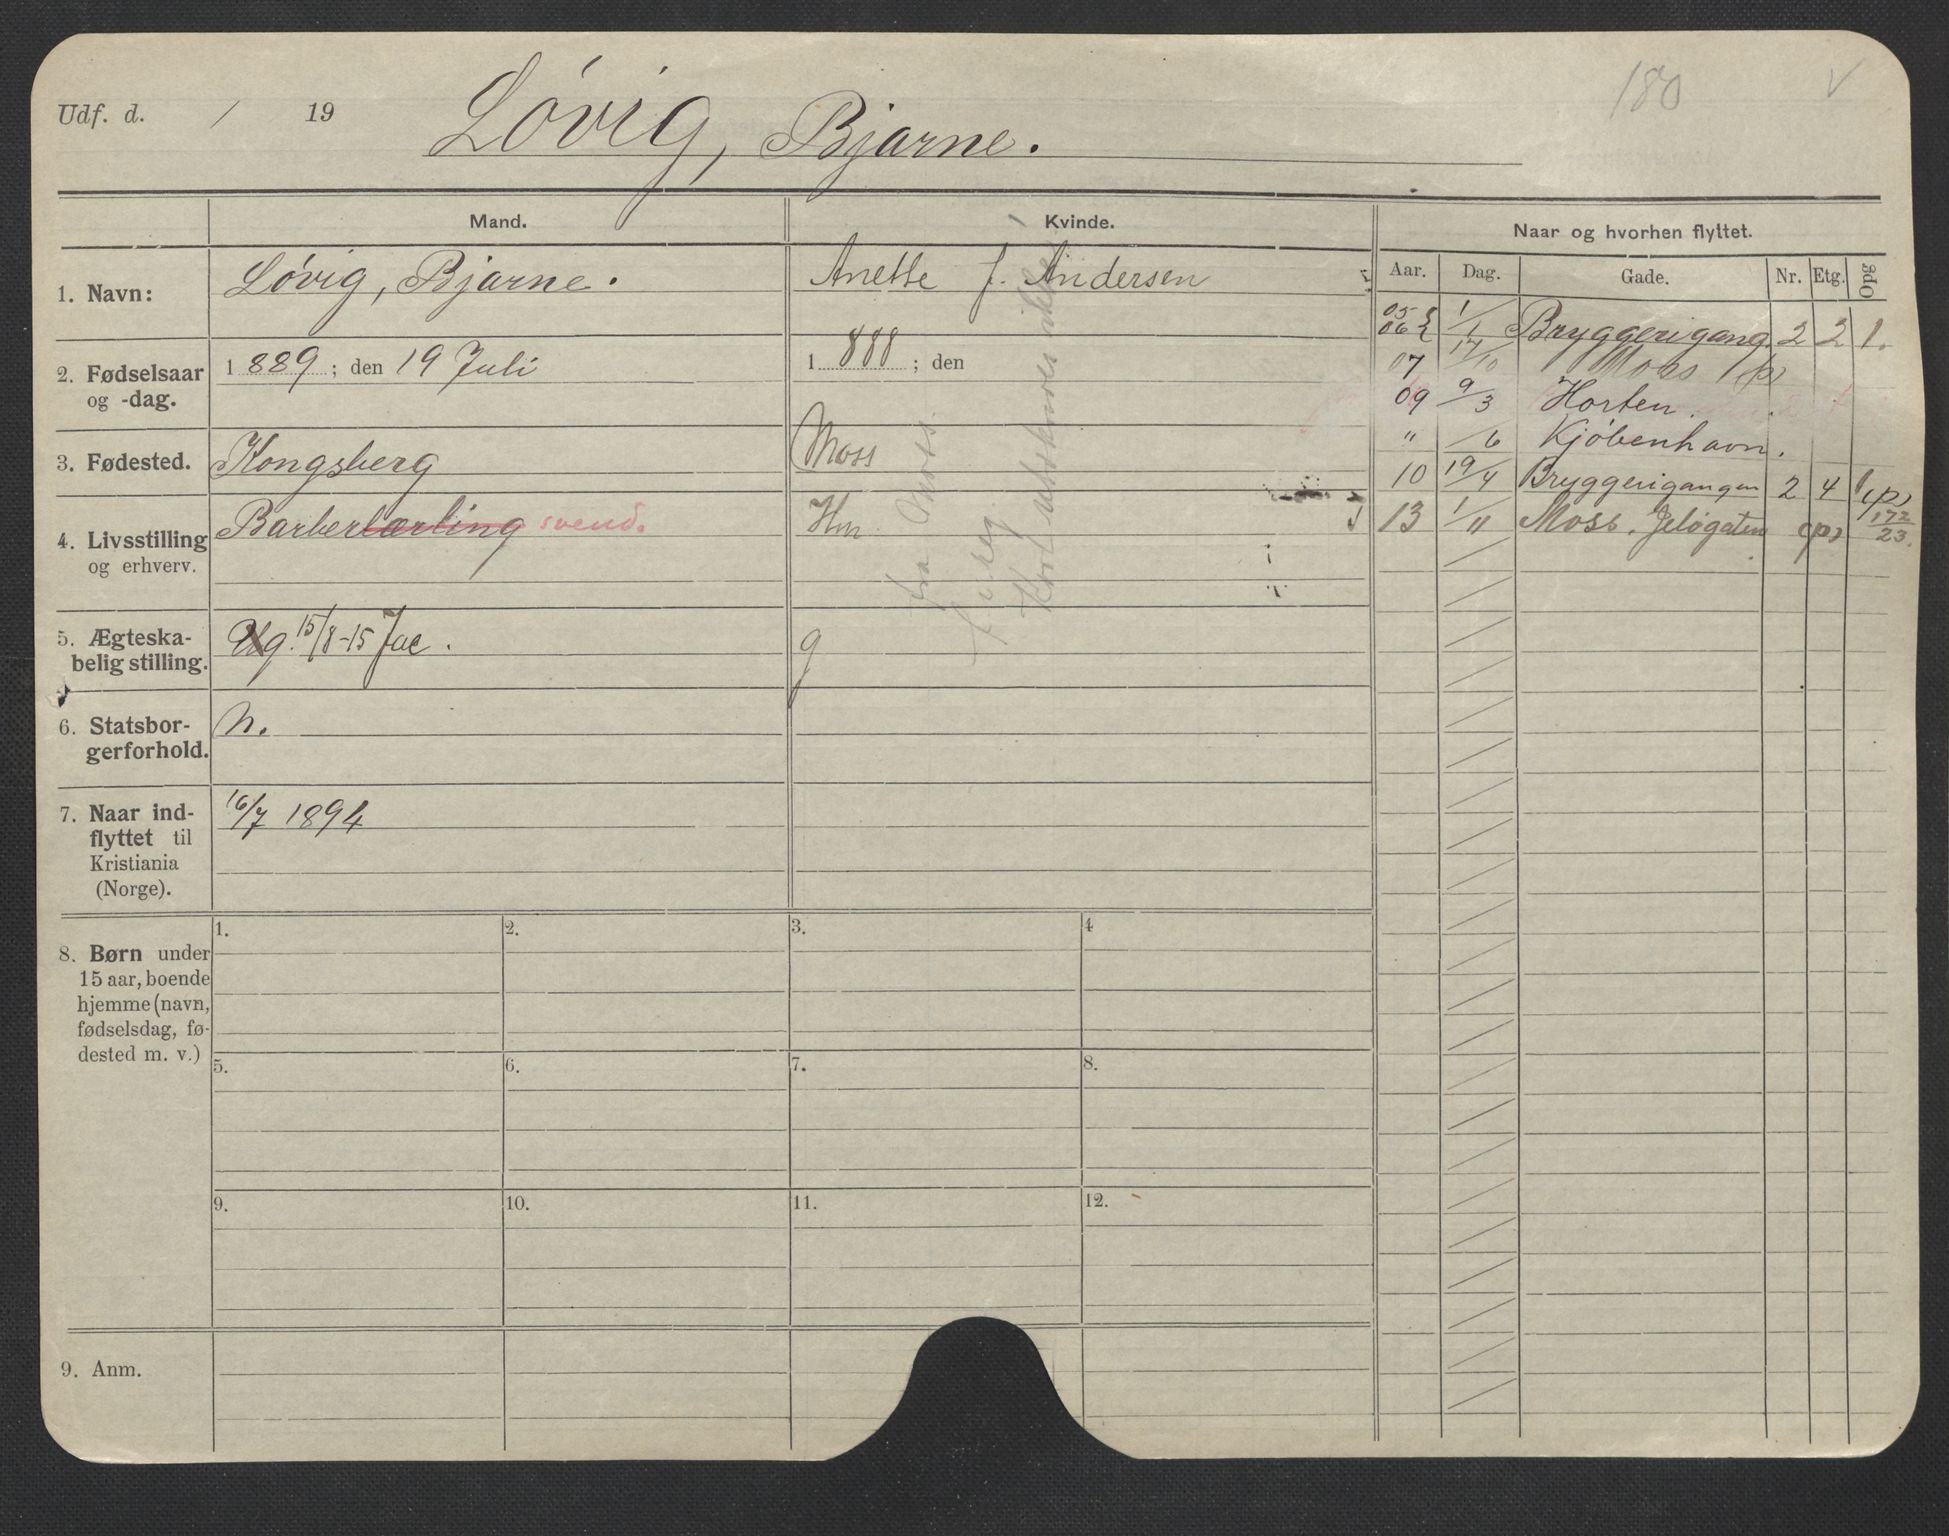 180 v
Udf. d. / 19 Løvig, Bjarne.
Mand. Kvinde. Naar og hvorhen flyttet.
Aar. Dag. Gade. Nr. Etg. Opg
1. Navn: Løvig, Bjarne. Anette J. Andersen
05 06 1/1 Bryggerigang. 2 2 1.
07 14/10 Moss (p)
2. Fødselsaar og -dag. 1889; den 19 Juli 1888; den
09 9/3 Horten.
" /6 Kjöbenhavn.
3. Fødested. Kongsberg Moss
10 19/4 Bryggerigangen 2 4 1 (p)
4. Livsstilling og erhverv. Barberlærling svend. Hm
13 1/11 Moss. Jeløgaten (p) 172/23.
fra Moss
5. Ægteska-
belig stilling. Ug. 15/8-15 g
6. Statsbor-
gerforhold. N.
7. Naar ind-
flyttet til
Kristiania
(Norge). 16/7 1894
8. Børn under
15 aar, boende
hjemme (navn,
fødselsdag, fø-
dested m. v.)
1. 2. 3. 4
5. 6. 7. 8.
9. 10. 11. 12.
9. Anm.